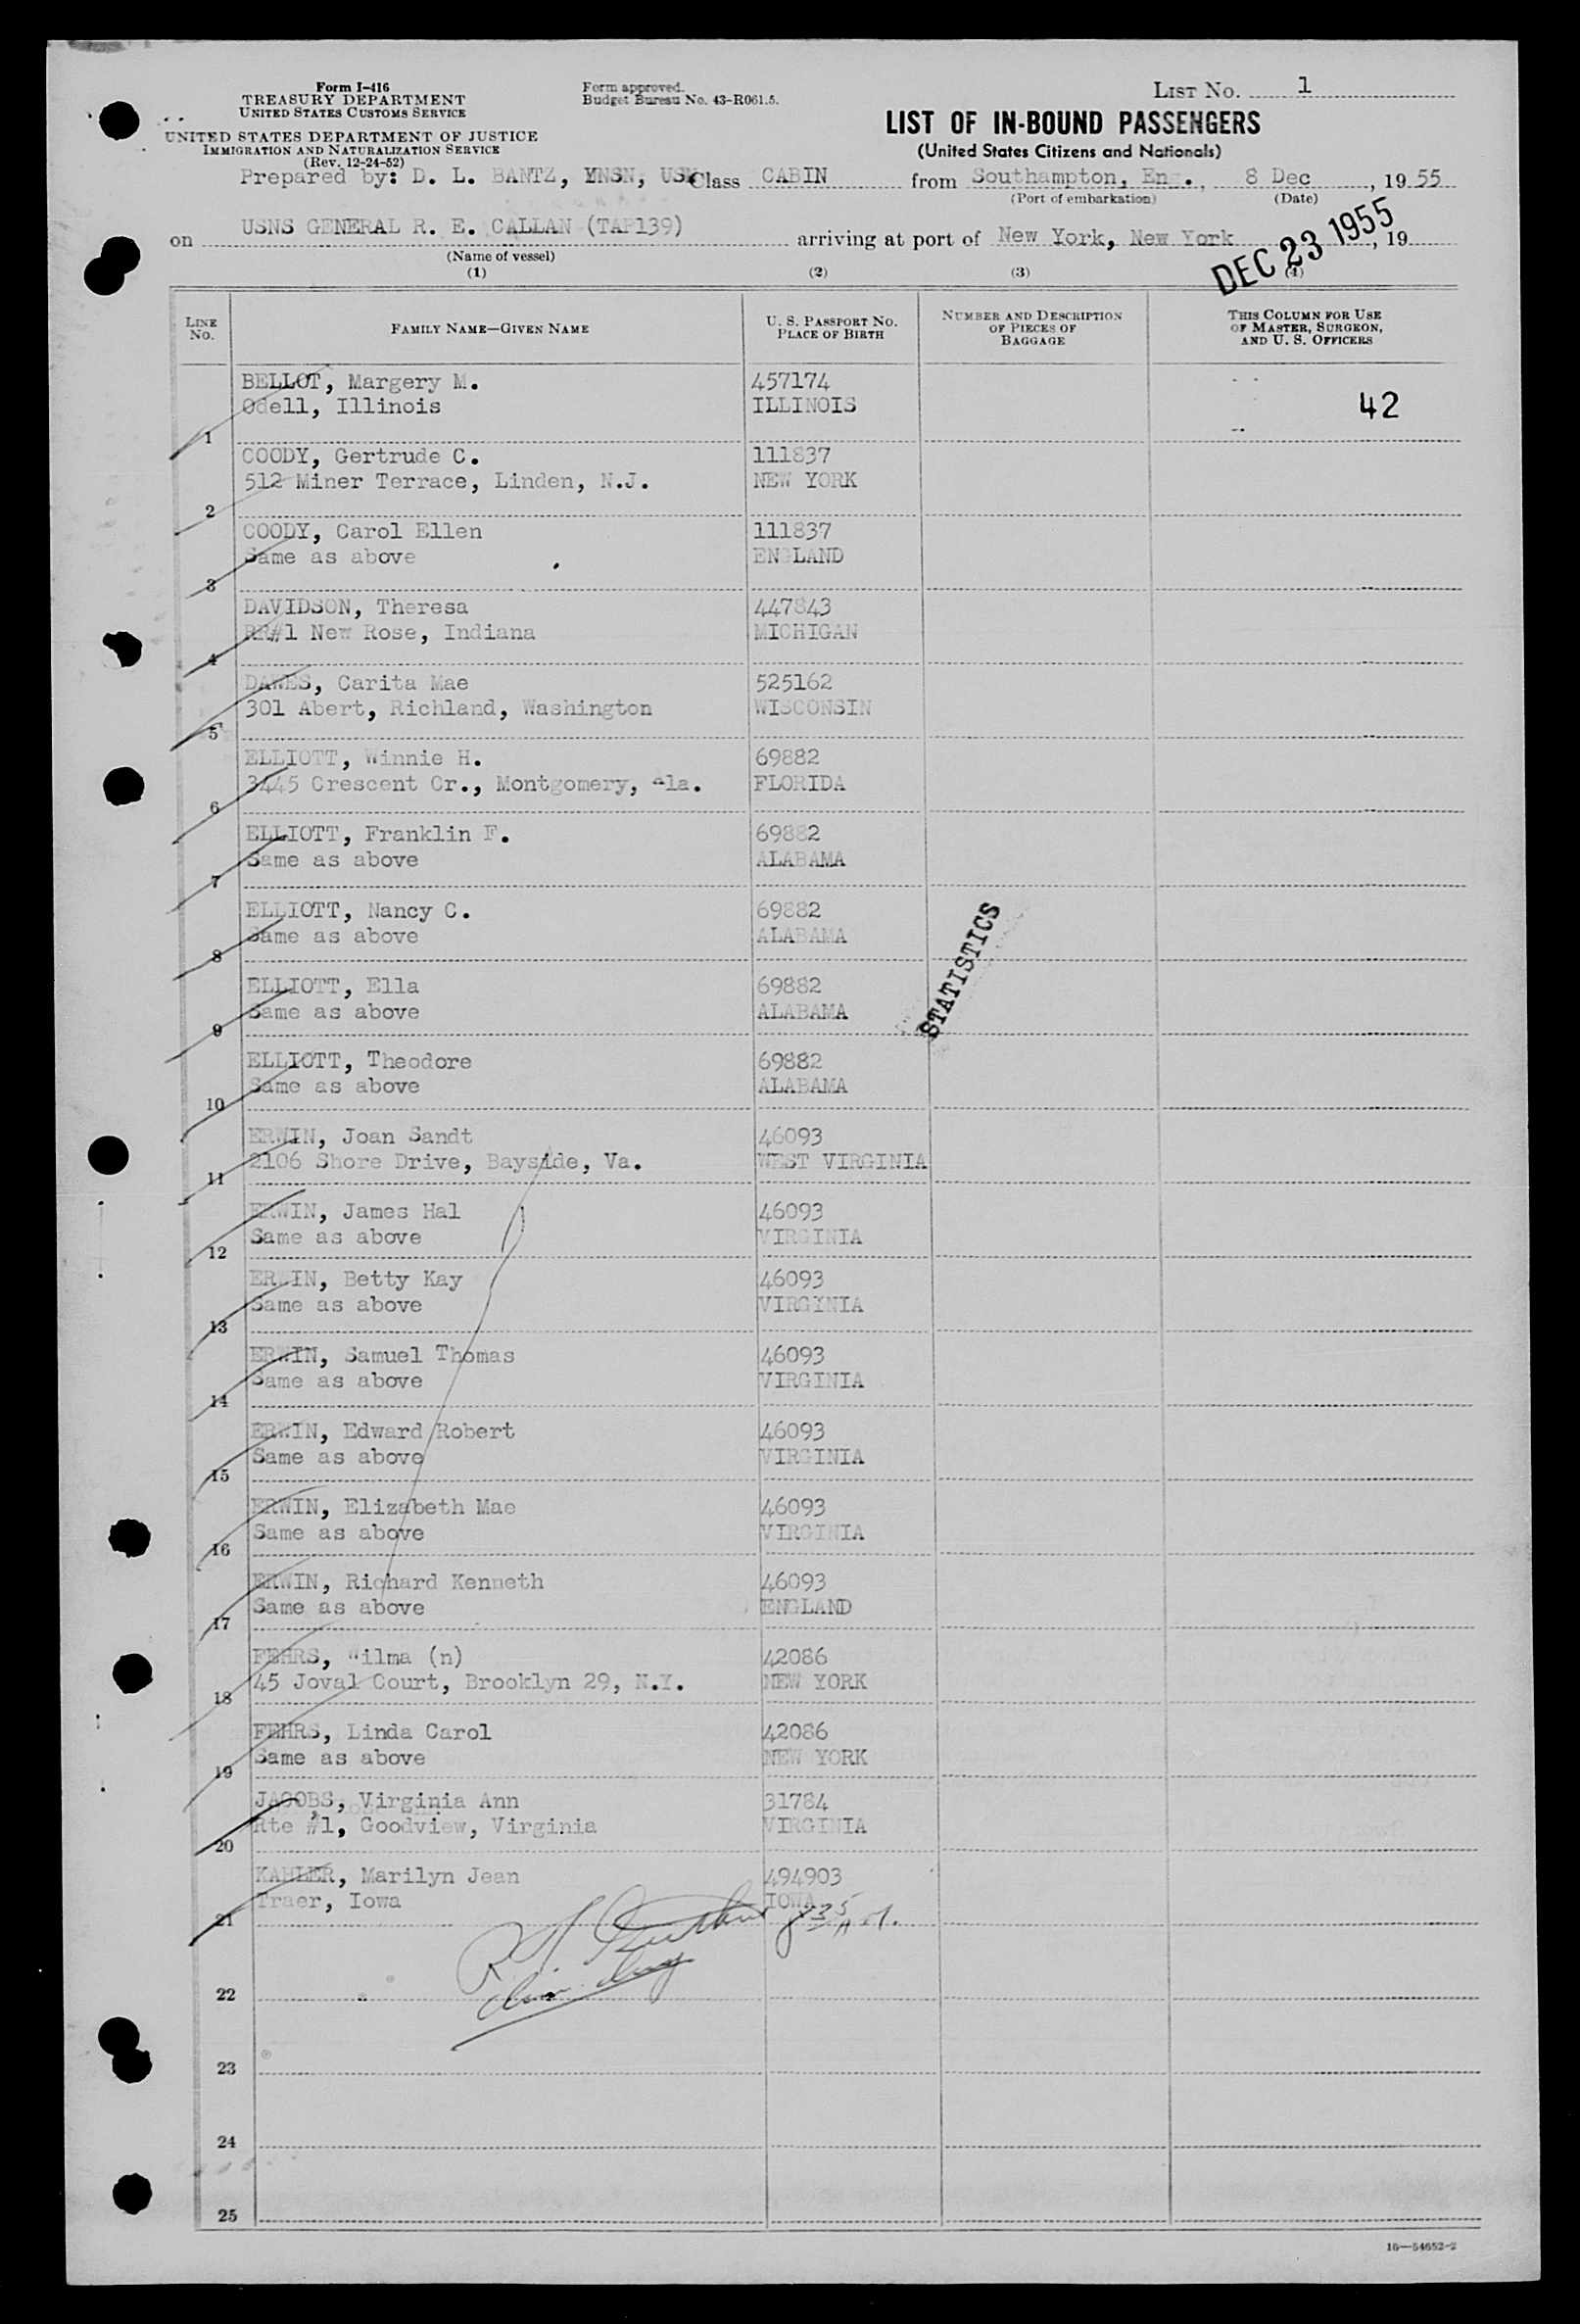 Form I-416
TREASURY DEPARTMENT
UNITED STATES CUSTOMS SERVICE
UNITED STATES DEPARTMENT OF JUSTICE
IMMIGRATION AND NATURALIZATION SERVICE
(Rev. 12-24-52)
Form approved.
Budget Bureau No. 43-R061.5.
LIST No. 1
LIST OF IN-BOUND PASSENGERS
(United States Citizens and Nationals)
Prepared by: D. L. BANTZ, YNSN, USN Class CABIN from Southampton, Eng., 8 Dec, 1955
(Port of embarkation) (Date)
on USNS GENERAL R. E. CALLAN (TAP139) arriving at port of New York, New York DEC 23 1955, 19
(Name of vessel)
(1) (2) (3) (4)
LINE No. FAMILY NAME—GIVEN NAME U. S. PASSPORT No. PLACE OF BIRTH NUMBER AND DESCRIPTION OF PIECES OF BAGGAGE THIS COLUMN FOR USE OF MASTER, SURGEON, AND U. S. OFFICERS
BELLOT, Margery M. 457174
Odell, Illinois ILLINOIS 42
1
COODY, Gertrude C. 111837
512 Miner Terrace, Linden, N.J. NEW YORK
2
COODY, Carol Ellen 111837
Same as above ENGLAND
3
DAVIDSON, Theresa 447843
RR#1 New Rose, Indiana MICHIGAN
4
DAWES, Carita Mae 525162
301 Abert, Richland, Washington WISCONSIN
5
ELLIOTT, Winnie H. 69882
3445 Crescent Cr., Montgomery, Ala. FLORIDA
6
ELLIOTT, Franklin F. 69882
Same as above ALABAMA
7
ELLIOTT, Nancy C. 69882
Same as above ALABAMA
8
ELLIOTT, Ella 69882
Same as above ALABAMA
9
STATISTICS
ELLIOTT, Theodore 69882
Same as above ALABAMA
10
ERWIN, Joan Sandt 46093
2106 Shore Drive, Bayside, Va. WEST VIRGINIA
11
ERWIN, James Hal 46093
Same as above VIRGINIA
12
ERWIN, Betty Kay 46093
Same as above VIRGINIA
13
ERWIN, Samuel Thomas 46093
Same as above VIRGINIA
14
ERWIN, Edward Robert 46093
Same as above VIRGINIA
15
ERWIN, Elizabeth Mae 46093
Same as above VIRGINIA
16
ERWIN, Richard Kenneth 46093
Same as above ENGLAND
17
FEHRS, Wilma (n) 42086
45 Joval Court, Brooklyn 29, N.Y. NEW YORK
18
FEHRS, Linda Carol 42086
Same as above NEW YORK
19
JACOBS, Virginia Ann 31784
Rte #1, Goodview, Virginia VIRGINIA
20
KAHLER, Marilyn Jean 494903
Traer, Iowa IOWA
21
22
23
24
25
16—54652-2